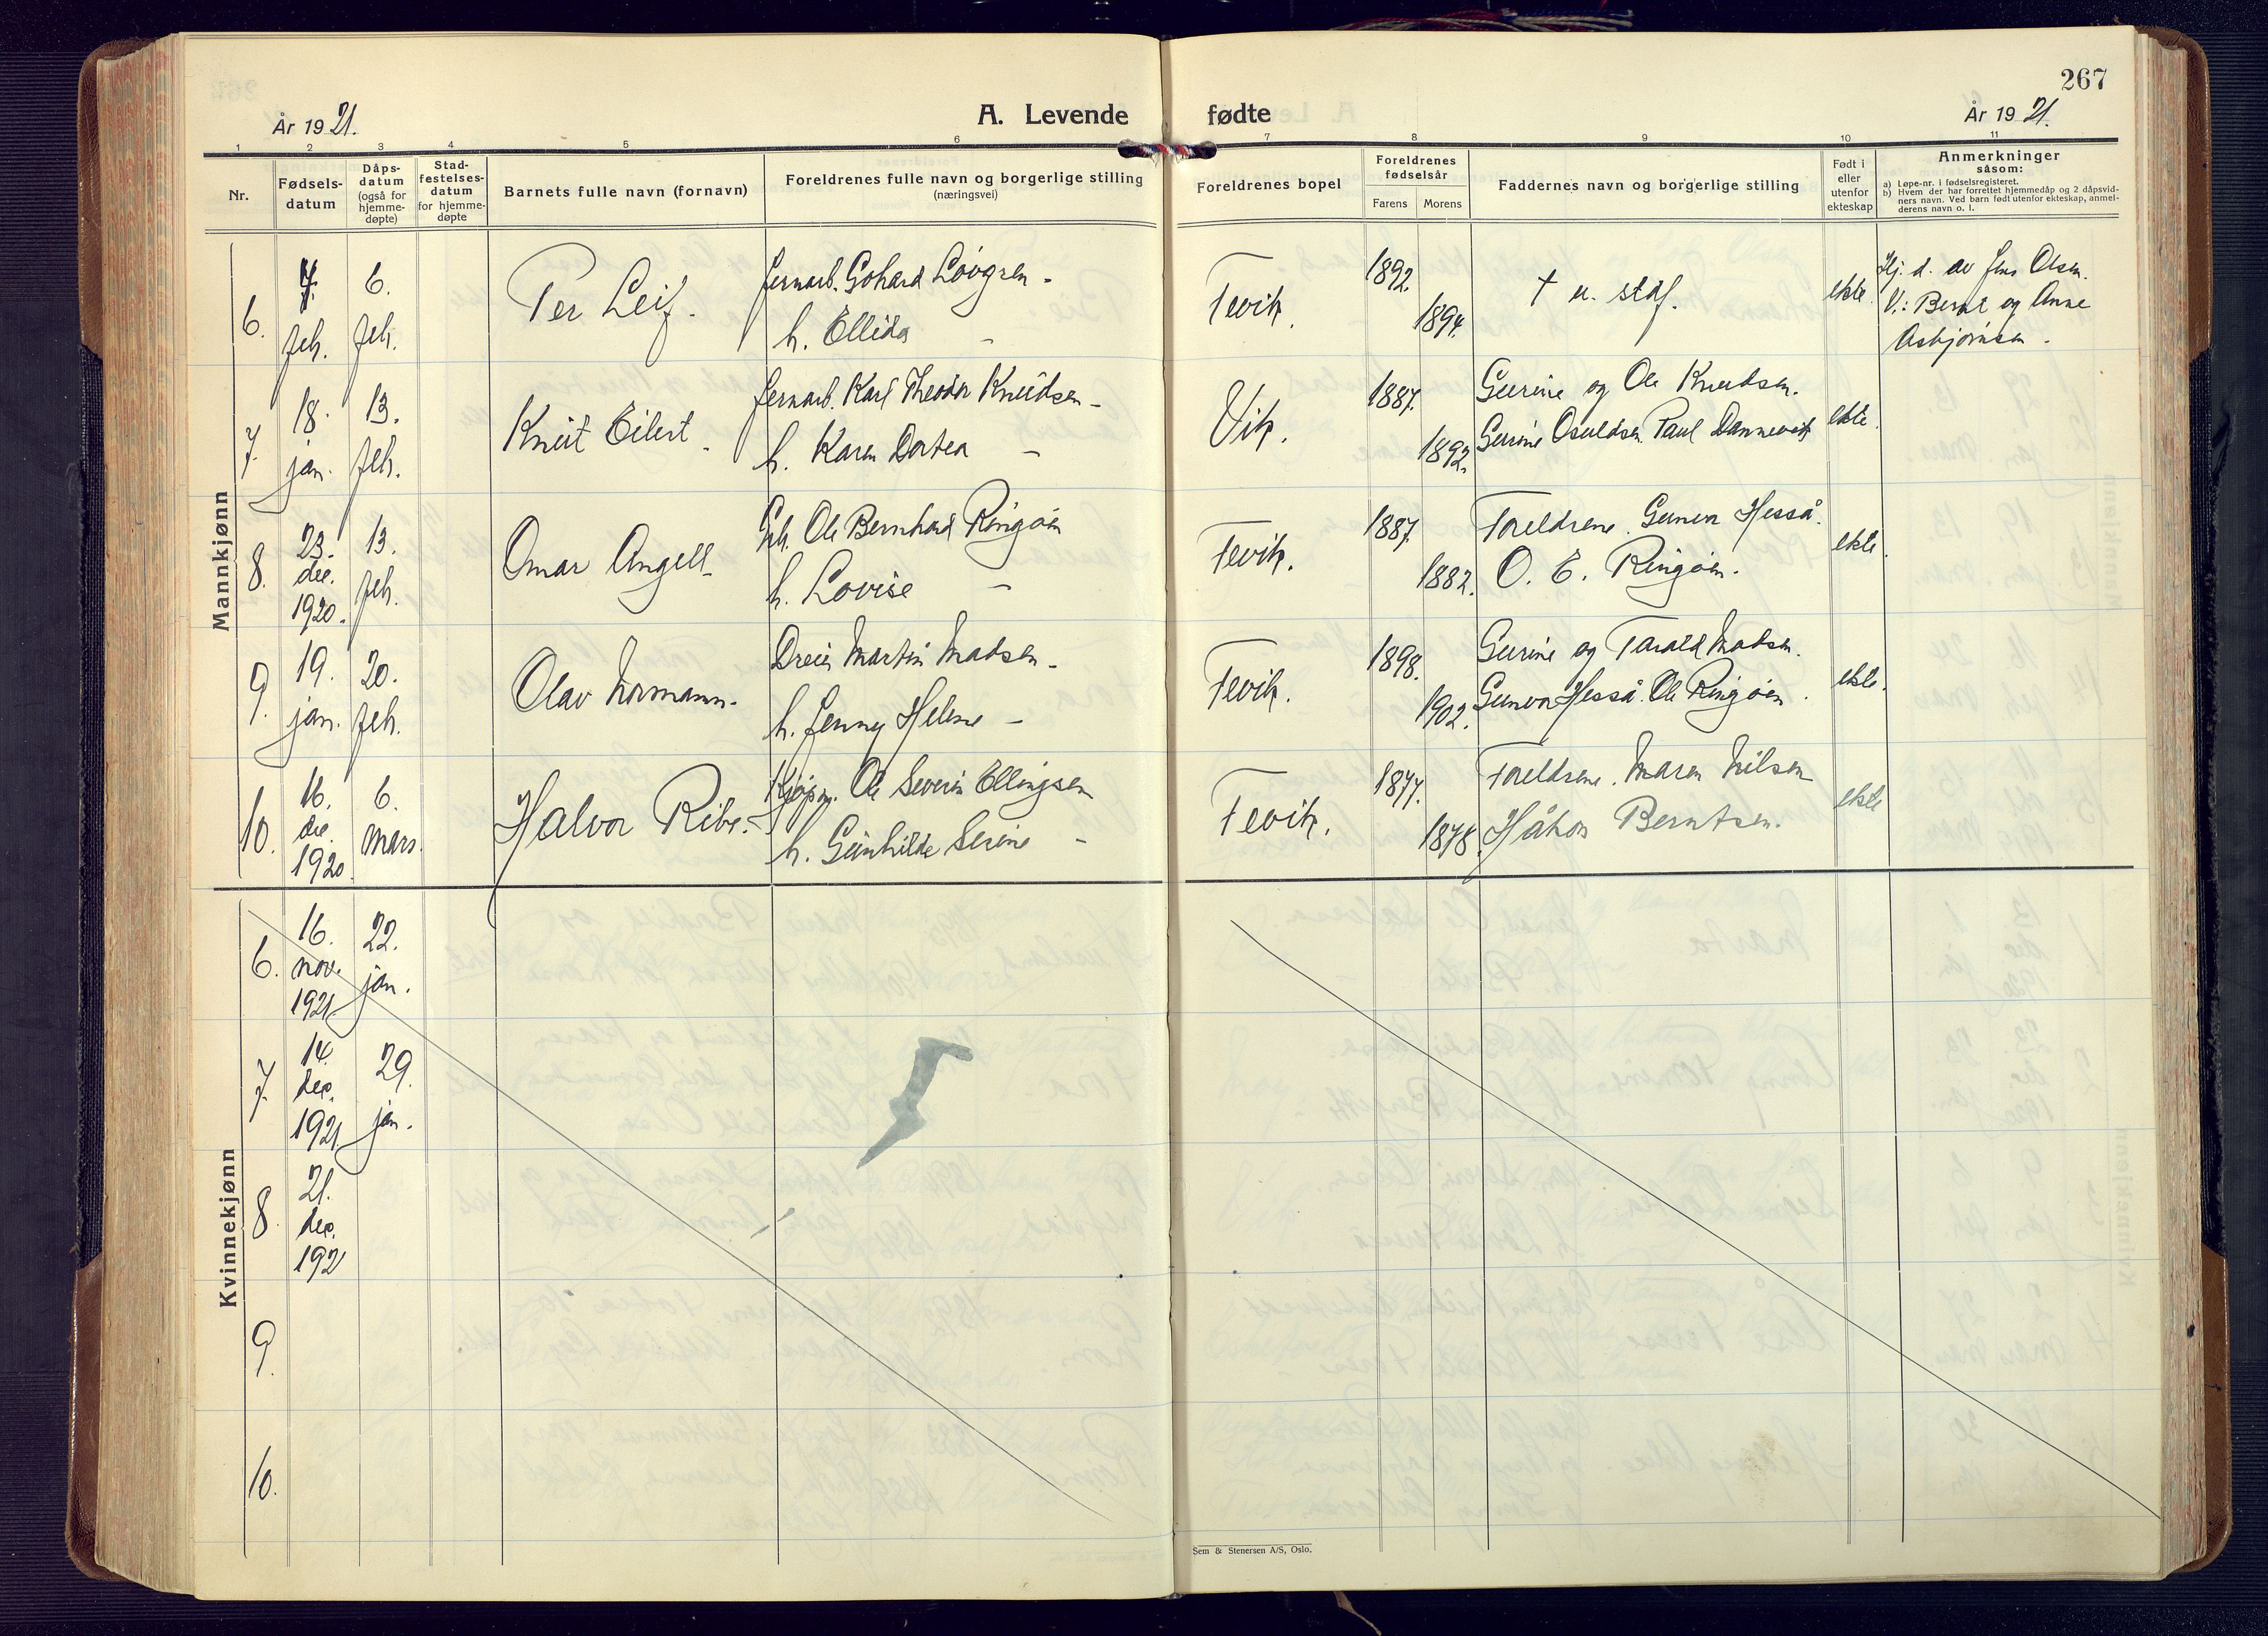 267
År 1921.
A. Levende
fødte
År 1921.
1 2 3 4 5 6 7 8 9 10 11
Nr.
Fødsels-
datum
Dåps-
datum
(også for
hjemme-
døpte)
Stad-
festelses-
datum
for hjemme-
døpte
Barnets fulle navn (fornavn)
Foreldrenes fulle navn og borgerlige stilling
(næringsvei)
Foreldrenes bopel
Foreldrenes
fødselsår
Farens
Morens
Faddernes navn og borgerlige stilling
Født i
eller
utenfor
ekteskap
Anmerkninger
såsom:
a) Løpe-nr. i fødselsregisteret.
b) Hvem der har forrettet hjemmedåp og 2 dåpsvid-
ners navn. Ved barn født utenfor ekteskap, anmel-
derens navn o. l.
Mannkjønn
6.
feb.
6.
feb.
Per Leif.
Jernarb. Gohard Lövgren -
h. Ellida -
Fevik.
1892.
1894.
† u. stadf.
ekte.
Hj. d. av Jens Olsen.
V.: Bernt og Anne
Asbjørnsen.
7.
18.
jan.
13.
feb.
Knut Eilert.
Jernarb. Karl Theodor Knudsen -
h. Karen Dortea -
Vik.
1887.
1892.
Gurine og Ole Knudsen.
Gurine Osuldsen. Paul Dannevik
ekte.
8.
23.
de.
1920.
13.
feb.
Omar Angell.
Ole Bernhard Ringøen
h. Lovise -
Fevik.
1887.
1882.
Foreldrene. Gunvor Hesså.
O. E. Ringøen.
ekte.
9.
19.
jan.
20.
feb.
Olav Normann.
Dreier Martin Madsen -
h. Jenny Helene -
Fevik.
1898.
1902.
Gurine og Tarald Madsen.
Gunvor Hesså. Ole Ringøen.
ekte.
10.
16.
de.
1920.
6.
mars.
Halvor Ribe.
Kjøpm. Ole Severin Ellingsen
h. Gunhilde Serine -
Fevik.
1877.
1878.
Foreldrene. Maren Nilsen
Håkon Berntsen.
ekte
Kvinnekjønn
6.
16.
nov.
1921
22.
jan.
7.
14.
des.
1921.
29.
jan.
8.
21.
des.
192
9.
10.
Sem & Stenersen A/S, Oslo.